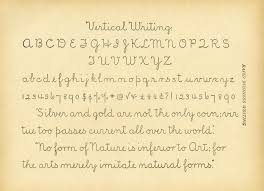 Vertical Writing.
ABCDEFGHIJKLMNOPQRS
TUVWXYZ
abcdefghijklmnopqrstuvwxyz
1234567890
"Silver and gold are not the only coin; vir
tue too passes current all over the world."
"No form of Nature is inferior to Art; for
the arts merely imitate natural forms."